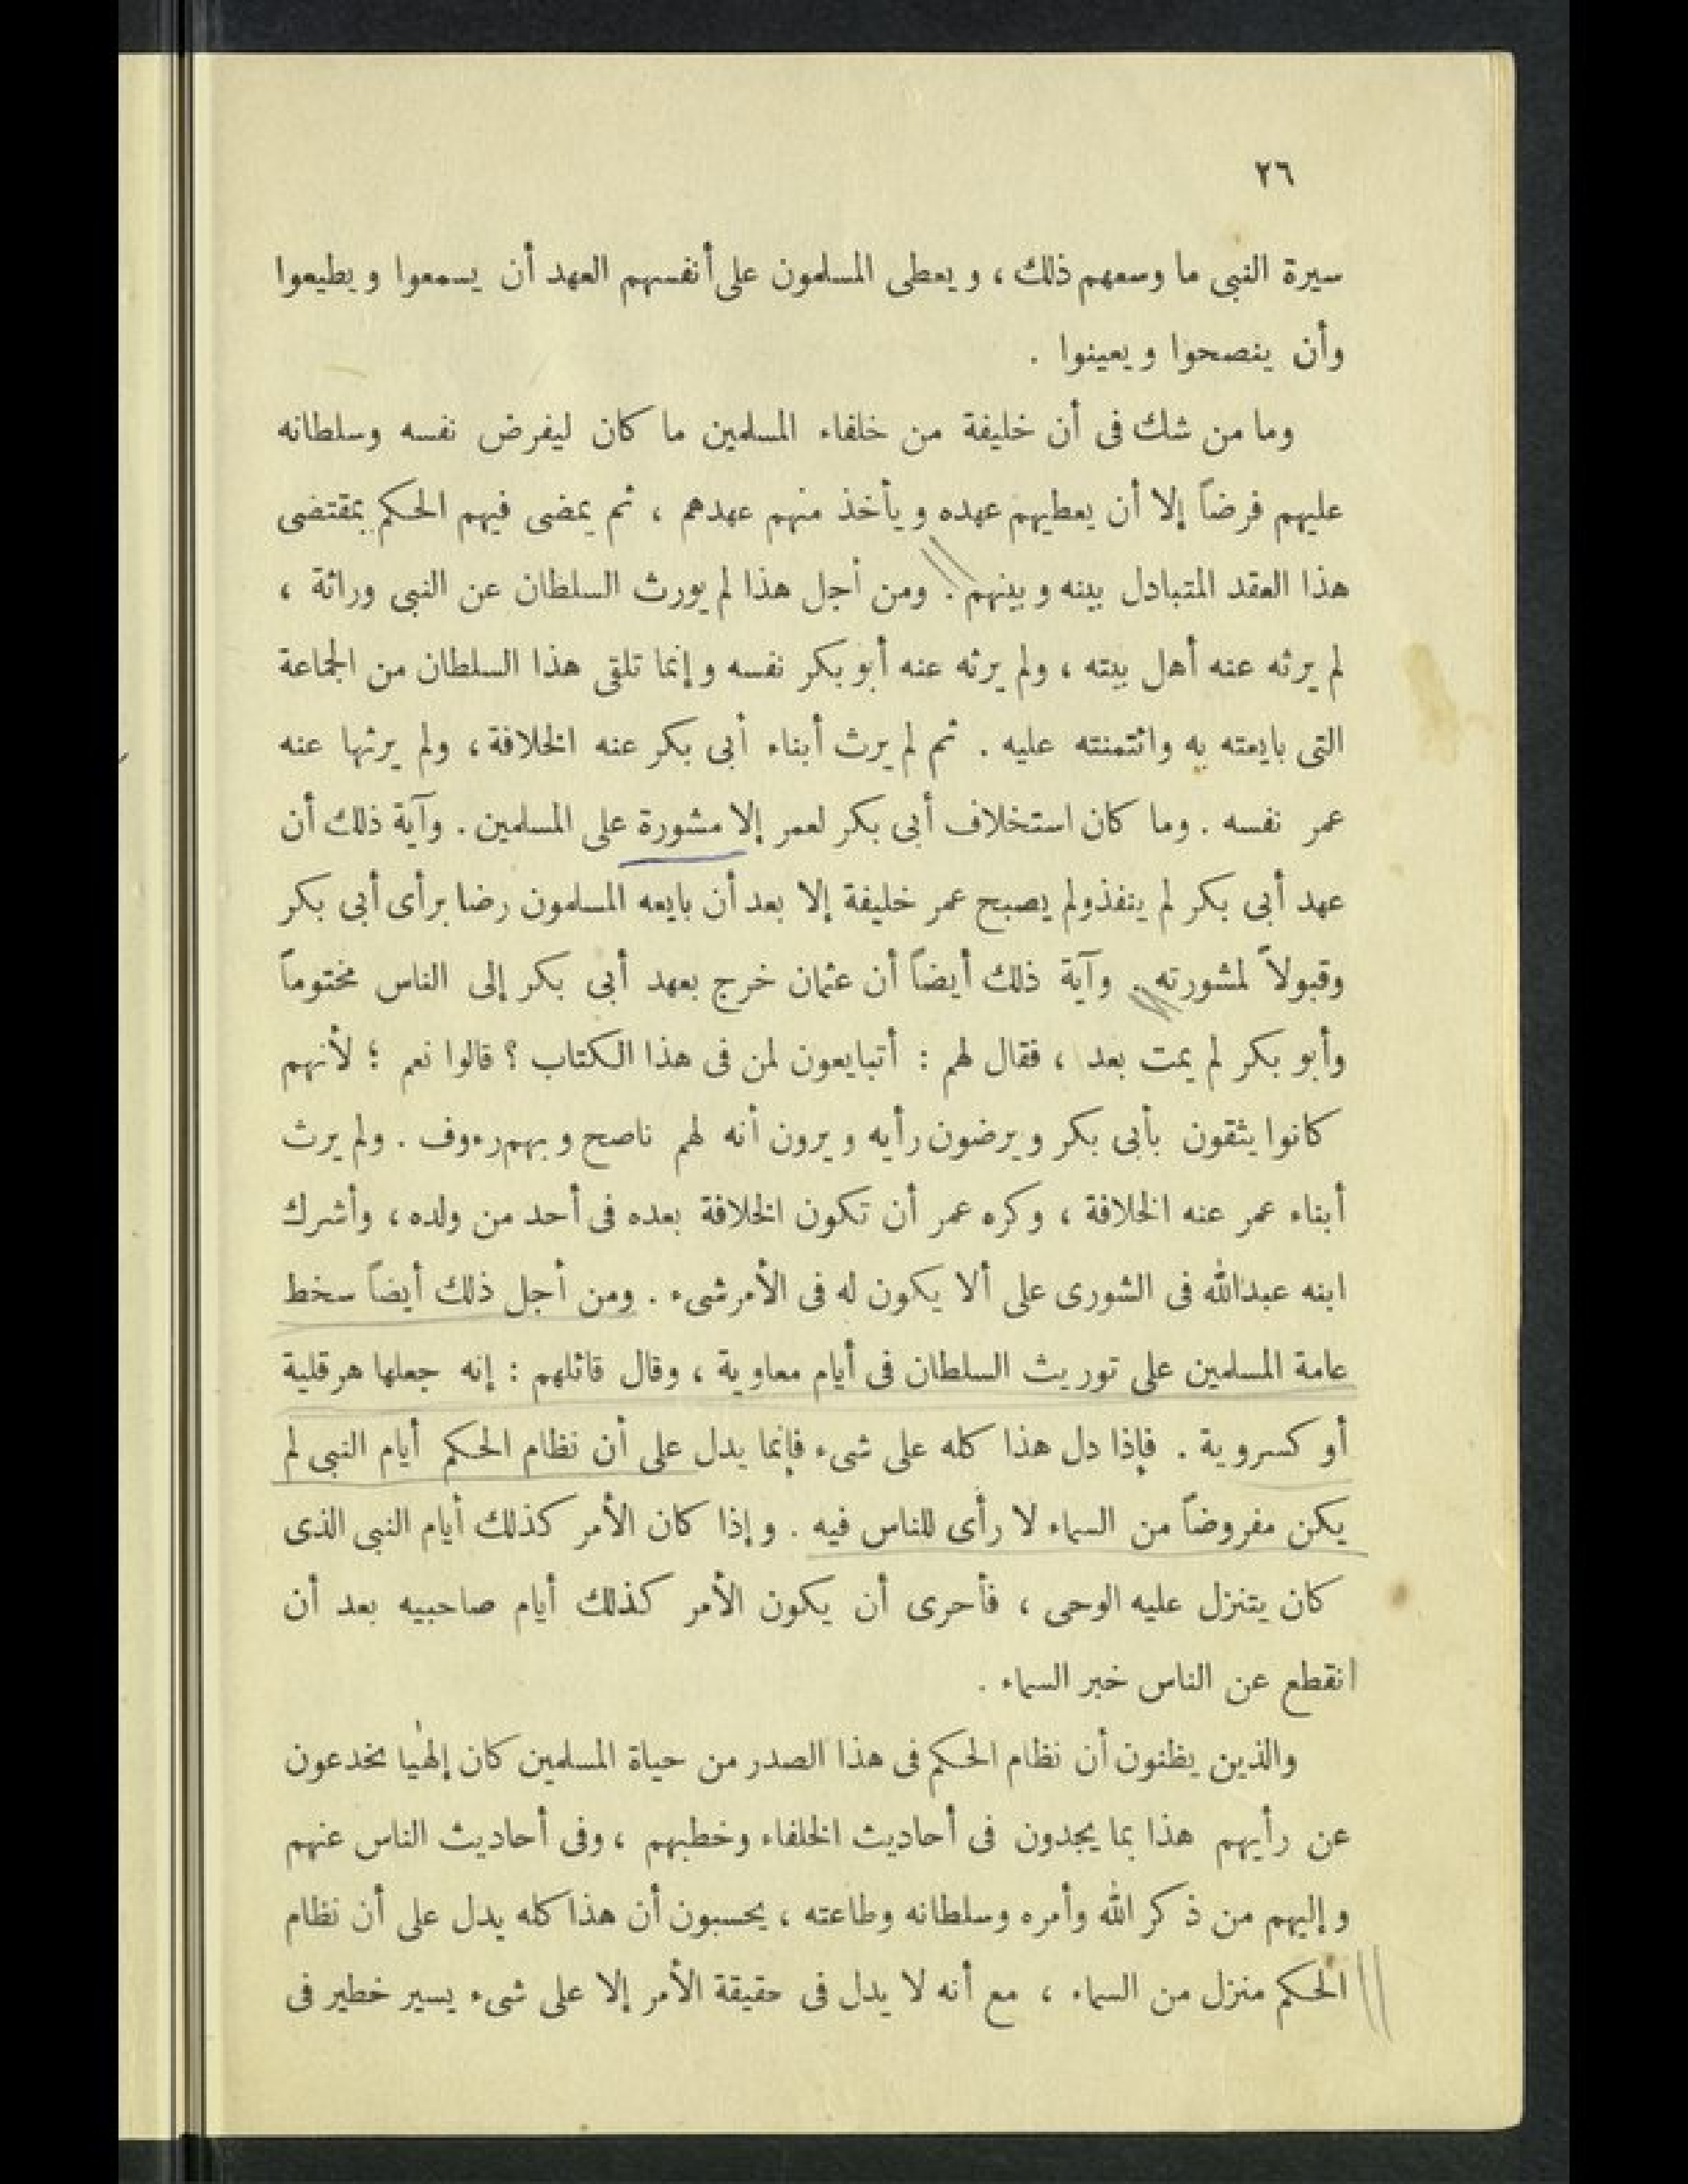 ٢٦
سيرة النبى ما وسعهم ذلك ، ويعطى المسلمون على أنفسهم العهد أن يسمعوا ويطيعوا
وأن ينصحوا ويعينوا .
وما من شك فى أن خليفة من خلفاء المسلمين ما كان ليفرض نفسه وسلطانه
عليهم فرضاً إلا أن يعطيهم عهده ويأخذ منهم عهدهم ، ثم يمضى فيهم الحكم بمقتضى
هذا العقد المتبادل بينه وبينهم . ومن أجل هذا لم يورث السلطان عن النبى وراثة ،
لم يرثه عنه أهل بيته ، ولم يرثه عنه أبو بكر نفسه وإنما تلقى هذا السلطان من الجماعة
التى بايعته به وائتمنته عليه . ثم لم يرث أبناء أبى بكر عنه الخلافة ، ولم يرثها عنه
عمر نفسه . وما كان استخلاف أبى بكر لعمر إلا مشورة على المسلمين . وآية ذلك أن
عهد أبى بكر لم ينفذ ولم يصبح عمر خليفة إلا بعد أن بايعه المسلمون رضا برأى أبى بكر
وقبولاً لمشورته . وآية ذلك أيضاً أن عثمان خرج بعهد أبى بكر إلى الناس مختوماً
وأبو بكر لم يمت بعد ، فقال لهم : أتبايعون لمن فى هذا الكتاب ؟ قالوا نعم ؛ لأنهم
كانوا يثقون بأبى بكر ويرضون رأيه ويرون أنه لهم ناصح وبهم رءوف . ولم يرث
أبناء عمر عنه الخلافة ، وكره عمر أن تكون الخلافة بعده فى أحد من ولده ، وأشرك
ابنه عبدالله فى الشورى على ألا يكون له فى الأمر شىء . ومن أجل ذلك أيضاً سخط
عامة المسلمين على توريث السلطان فى أيام معاوية ، وقال قائلهم : إنه جعلها هرقلية
أو كسروية . فإذا دل هذا كله على شىء فإنما يدل على أن نظام الحكم أيام النبى لم
يكن مفروضاً من السماء لا رأى للناس فيه . وإذا كان الأمر كذلك أيام النبى الذى
كان يتنزل عليه الوحى ، فأحرى أن يكون الأمر كذلك أيام صاحبيه بعد أن
انقطع عن الناس خبر السماء .
والذين يظنون أن نظام الحكم فى هذا الصدر من حياة المسلمين كان إلهٰيا يخدعون
عن رأيهم هذا بما يجدون فى أحاديث الخلفاء وخطبهم ، وفى أحاديث الناس عنهم
وإليهم من ذكر الله وأمره وسلطانه وطاعته ، يحسبون أن هذا كله يدل على أن نظام
الحكم منزل من السماء ، مع أنه لا يدل فى حقيقة الأمر إلا على شىء يسير خطير فى